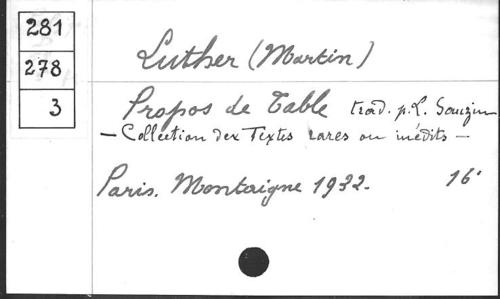 281
278
3
Luther (Martin)
Propos de Table trad. p. L. Sauzin
— Collection des Textes rares ou inédits —
Paris. Montaigne 1932. 16°